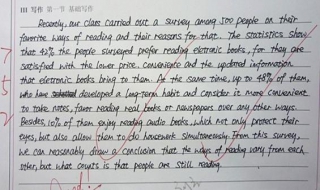 III 写作 第一节 基础写作
Recently, our class carried out a survey among 300 people on their
favorite ways of reading and their reasons for that. The statistics show
that 42% the people surveyed prefer reading eletronic books, for they are
satisfied with the lower price, convenience and the updated information
that eletronic books bring to them. At the same time, up to 48% of them,
who have developed a long-term habit and consider it more convenient
to take notes, favor reading real books or newspapers over any other ways.
Besides, 10% of them enjoy reading audio books, which not only protect their
eyes, but also allow them to do housework simultaneously. From this survey,
we can reasonably draw a conclusion that the ways of reading vary from each
other, but what counts is that people are still reading.